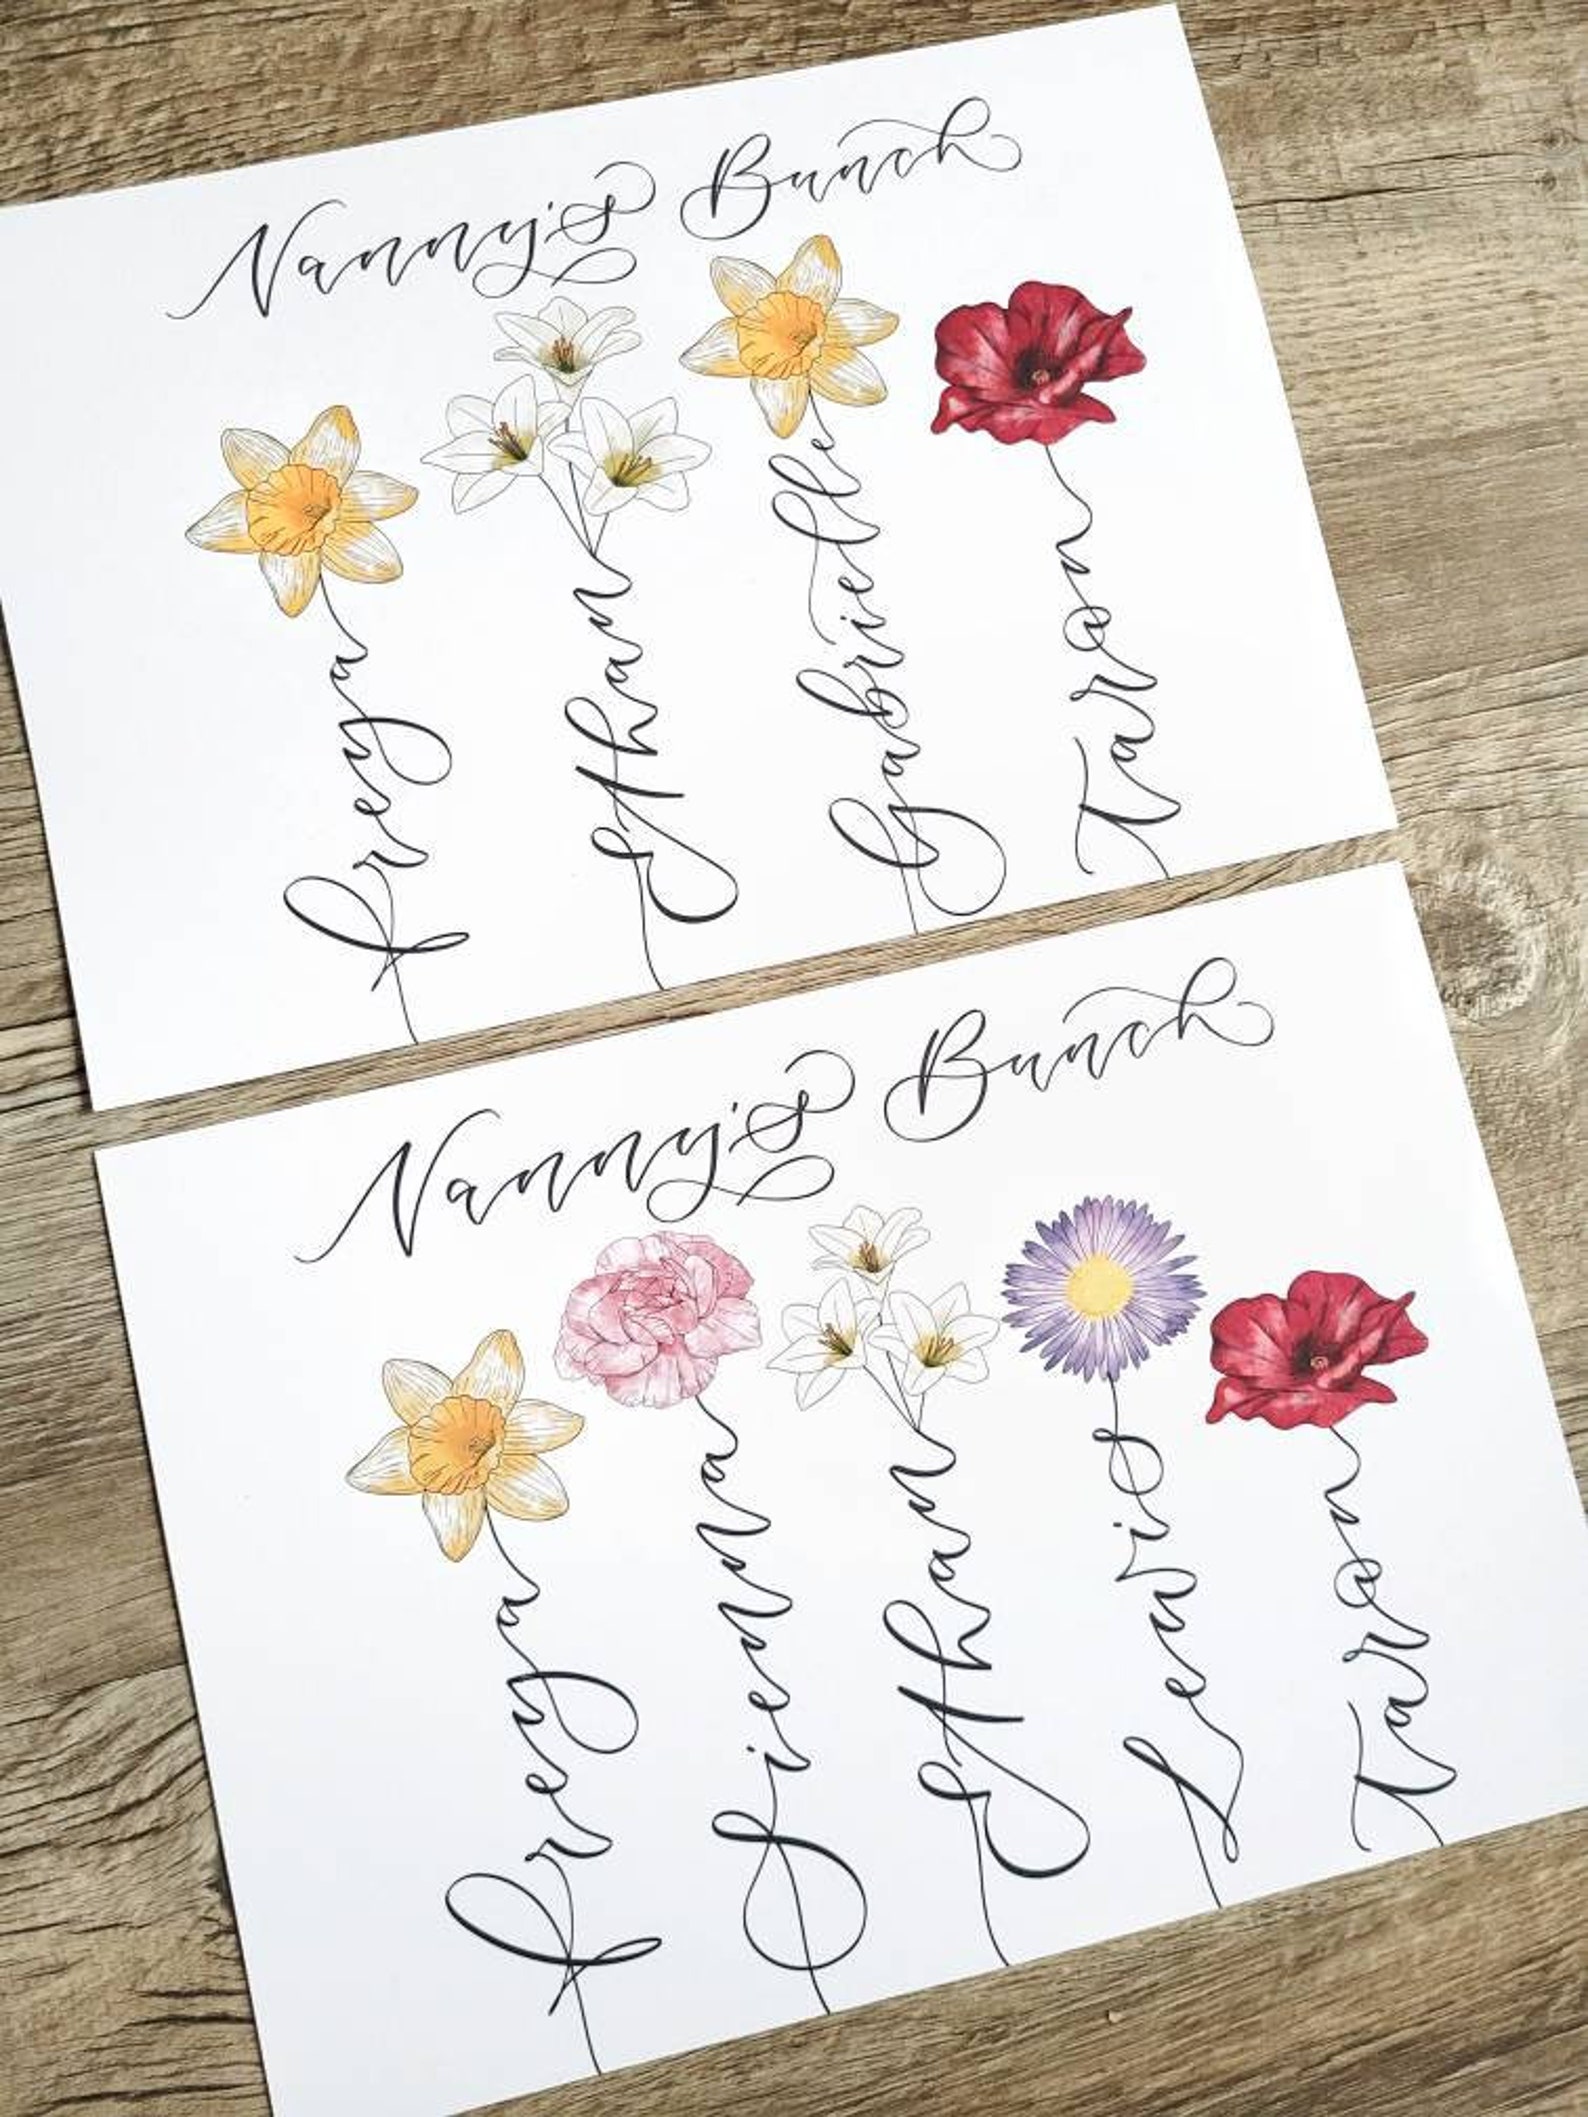 Nanny's Bunch
Freya
Ethan
Gabrielle
Taron
Nanny's Bunch
Freya
Sienna
Ethan
Lewis
Taron